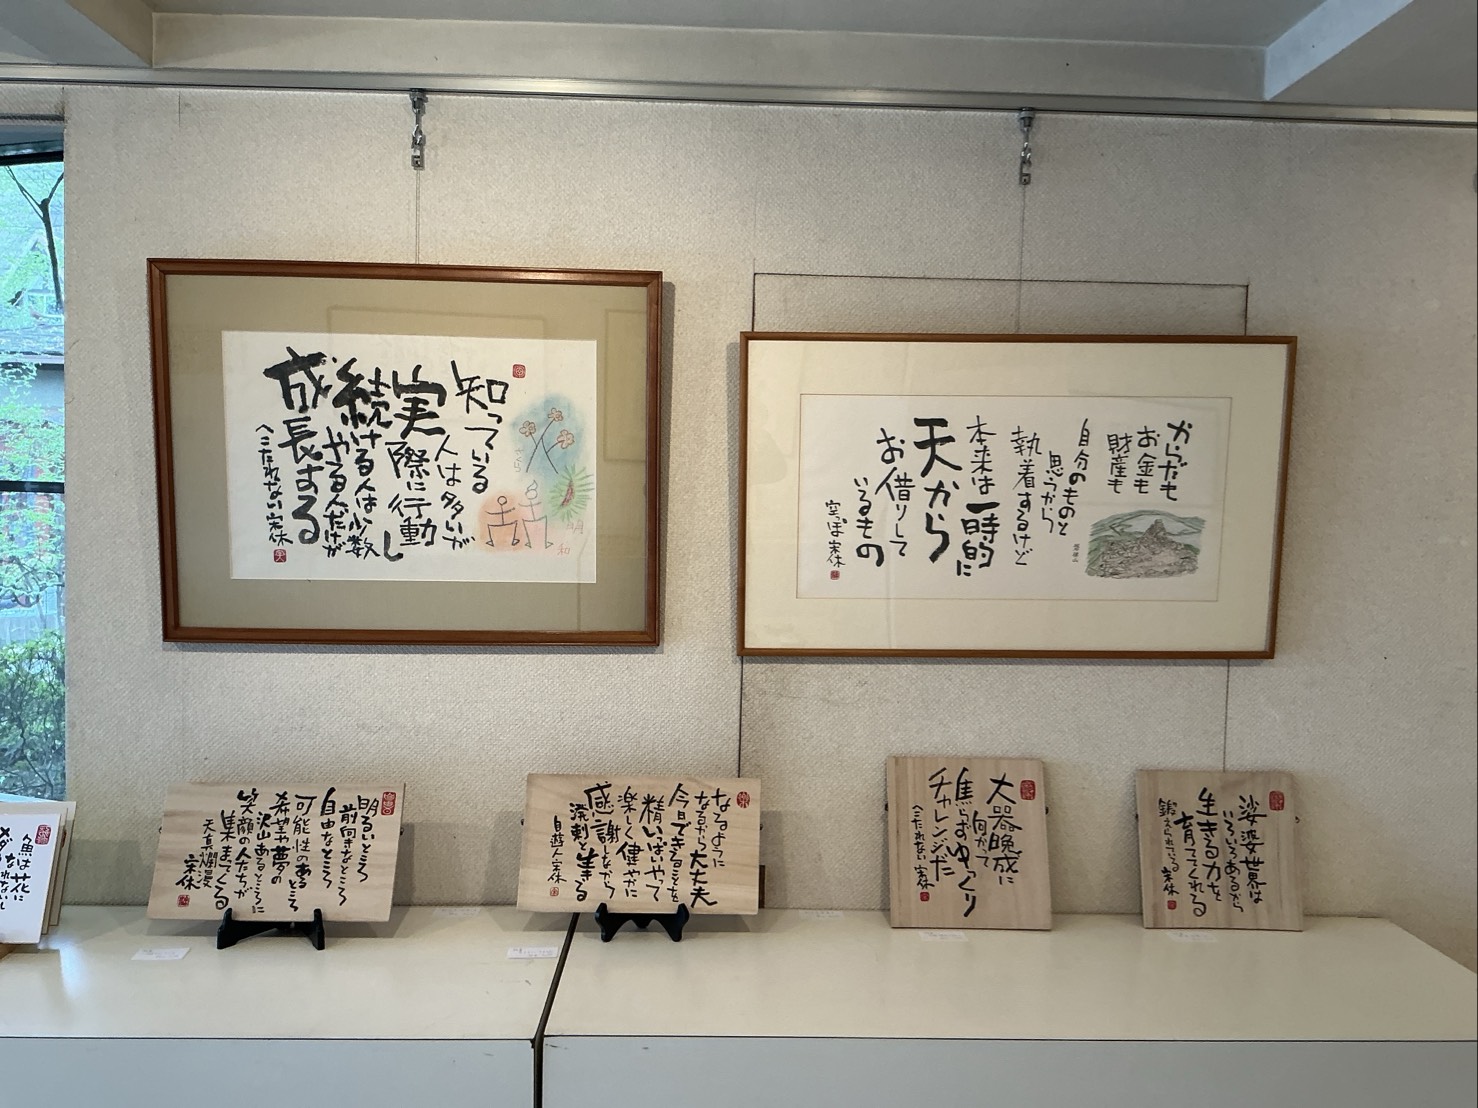 知っている
人は多いが
実際に行動し
続ける人は少数
やる人だけが
成長する
へこたれない宋休
さくら
和
からだも
お金も
財産も
自分のものと
思うから
執着するけど
本来は一時的に
天から
お借りして
いるもの
空っぽ宋休
明るいところ
前向きなところ
自由なところ
可能性のあるところ
希望や夢の
沢山あるところに
笑顔の人たちが
集まってくる
天真爛漫
宋休
なるように
なるから大丈夫
今日できることを
精いっぱいやって
楽しく健やかに
感謝しながら
溌剌と生きる
自遊人宋休
大器晩成に
向かって
焦らずゆっくり
チャレンジだ
へこたれない宋休
娑婆世界は
いろいろあるから
生きる力を
育ててくれる
鍛えられている宋休
魚は花に
なれないし